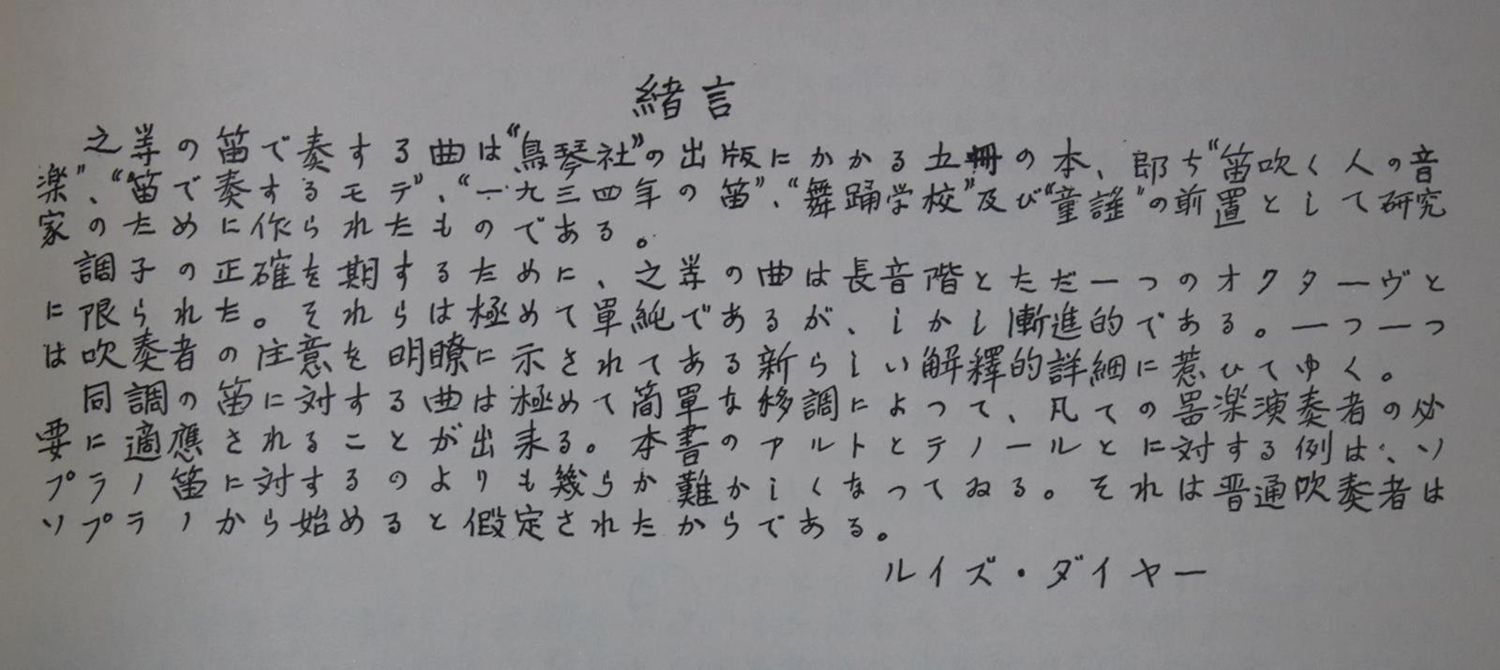 緒言
之等の笛で奏する曲は“鳥琴社”の出版にかかる五冊の本、郎ち“笛吹く人の音
楽”、“笛で奏するモテ”、“一九三四年の笛”、“舞踊学校”及び“童謡”の前置として研究
家のために作られたものである。
調子の正確を期するために、之等の曲は長音階とただ一つのオクターヴと
に限られた。それらは極めて單純であるが、しかし漸進的である。一つ一つ
は吹奏者の注意を明瞭に示されてある新らしい解釋的詳細に惹ひてゆく。
同調の笛に対する曲は極めて簡單な移調によつて、凡ての器楽演奏者の必
要に適應されることが出来る。本書のアルトとテノールとに対する例は、ソ
プラノ笛に対するのよりも幾らか難かしくなってゐる。それは普通吹奏者は
ソプラノから始めると假定されたからである。
ルイズ・ダイヤー